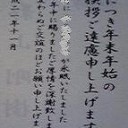 につき年末年始の
挨拶ご遠慮申し上げます
が永眠いたしました
年中に賜りましたご厚情を深謝致し
ぬご交誼のほどお願い申し上げま
十一月